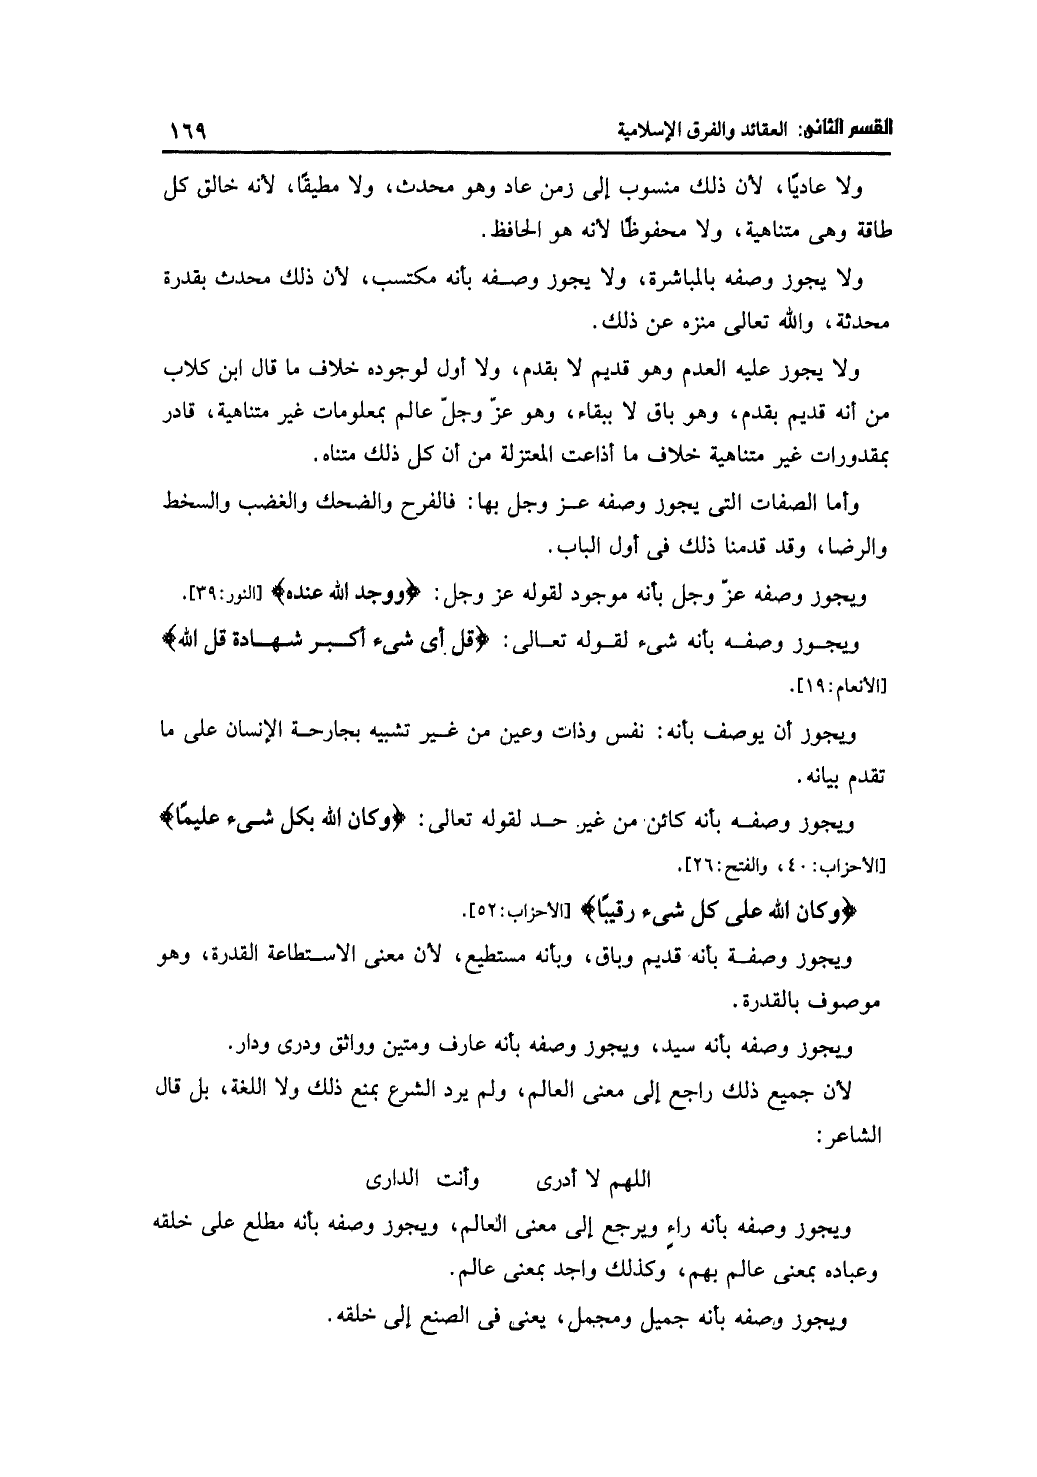 القسم الثانى: العقائد والفرق الإسلامية ١٦٩
ولا عاديًا، لأن ذلك منسوب إلى زمن عاد وهو محدث، ولا مطيقًا، لأنه خالق كل
طاقة وهى متناهية، ولا محفوظًا لأنه هو الحافظ.
ولا يجوز وصفه بالمباشرة، ولا يجوز وصفه بأنه مكتسب، لأن ذلك محدث بقدرة
محدثة، والله تعالى منزه عن ذلك.
ولا يجوز عليه العدم وهو قديم لا بقدم، ولا أول لوجوده خلاف ما قال ابن كلاب
من أنه قديم بقدم، وهو باق لا ببقاء، وهو عزّ وجلّ عالم بمعلومات غير متناهية، قادر
بمقدورات غير متناهية خلاف ما أذاعت المعتزلة من أن كل ذلك متناه.
وأما الصفات التى يجوز وصفه عز وجل بها: فالفرح والضحك والغضب والسخط
والرضا، وقد قدمنا ذلك فى أول الباب.
ويجوز وصفه عزّ وجل بأنه موجود لقوله عز وجل: ﴿ووجد الله عنده﴾ [النور:٣٩].
ويجوز وصفه بأنه شىء لقوله تعالى: ﴿قل أى شىء أكبر شهادة قل الله﴾
[الأنعام:١٩].
ويجوز أن يوصف بأنه: نفس وذات وعين من غير تشبيه بجارحة الإنسان على ما
تقدم بيانه.
ويجوز وصفه بأنه كائن من غير حد لقوله تعالى: ﴿وكان الله بكل شىء عليمًا﴾
[الأحزاب:٤٠، والفتح:٢٦].
﴿وكان الله على كل شىء رقيبًا﴾ [الأحزاب:٥٢].
ويجوز وصفة بأنه قديم وباق، وبأنه مستطيع، لأن معنى الاستطاعة القدرة، وهو
موصوف بالقدرة.
ويجوز وصفه بأنه سيد، ويجوز وصفه بأنه عارف ومتين وواثق ودرى ودار.
لأن جميع ذلك راجع إلى معنى العالم، ولم يرد الشرع بمنع ذلك ولا اللغة، بل قال
الشاعر:
اللهم لا أدرى وأنت الدارى
ويجوز وصفه بأنه راءٍ ويرجع إلى معنى العالم، ويجوز وصفه بأنه مطلع على خلقه
وعباده بمعنى عالم بهم، وكذلك واجد بمعنى عالم.
ويجوز وصفه بأنه جميل ومجمل، يعنى فى الصنع إلى خلقه.